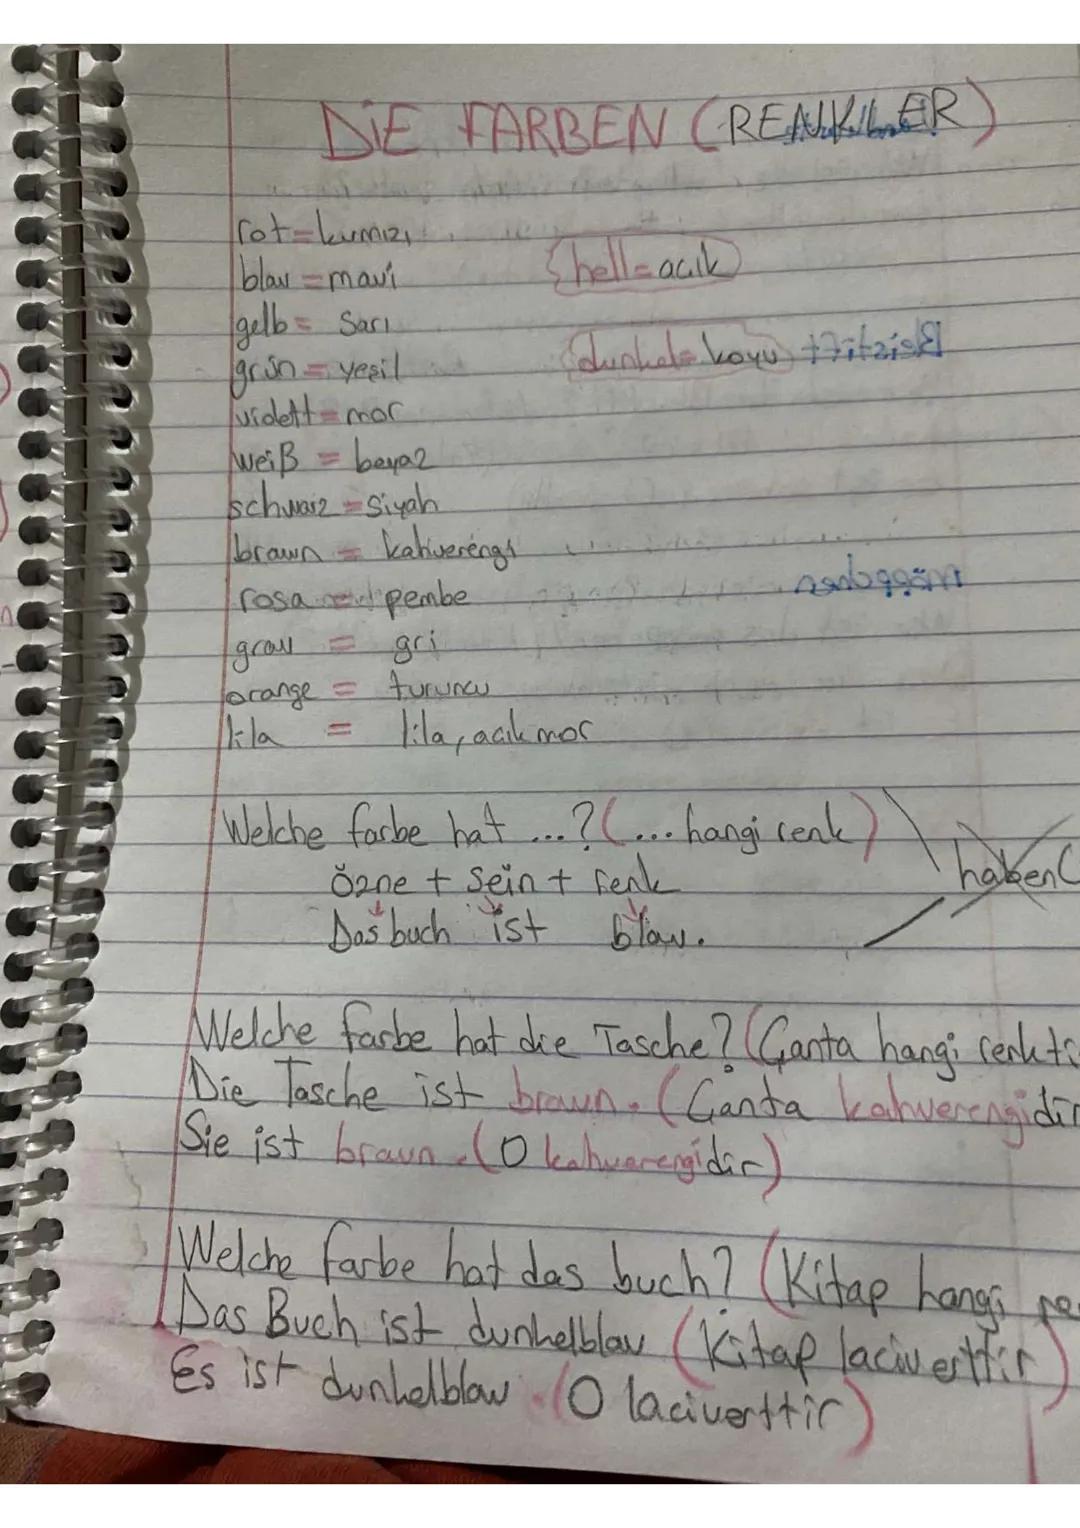 DİE FARBEN (RENKLER)
rot = kırmızı
blau = mavi
hell = acık
gelb = Sarı
dunkel = koyu
grün = yeşil
violett = mor
weiß = beyaz
schwarz = Siyah
braun = kahverengi
rosa = pembe
grau = gri
orange = turuncu
lila = lila, acık mor
Welche farbe hat ...? (... hangi renk)
haben(
özne + Sein + renk
Das buch ist blau.
Welche farbe hat die Tasche? (Çanta hangi renkti
Die Tasche ist braun. (Çanta kahverengidir
Sie ist braun. (O kahverengidir)
Welche farbe hat das buch? (Kitap hangi re
Das Buch ist dunkelblau (Kitap laciverttir)
Es ist dunkelblau. (O laciverttir)